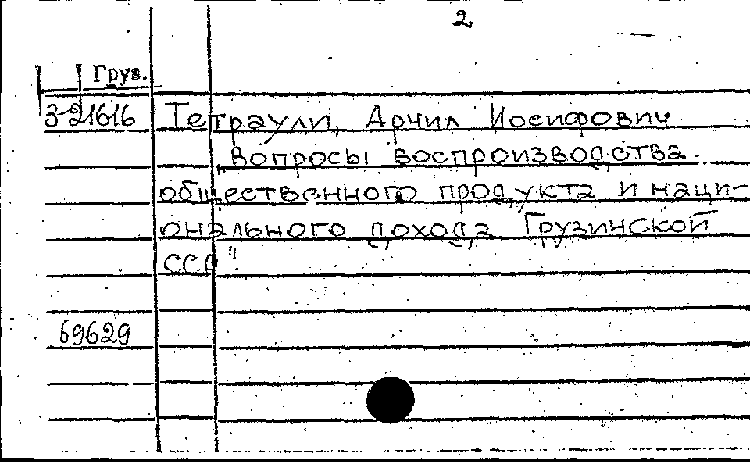 2
Груз.
3-21616 Тетраули, Арчил Иосифович
„Вопросы воспроизводства
общественного продукта и наци-
онального дохода Грузинской
ССР"
69629